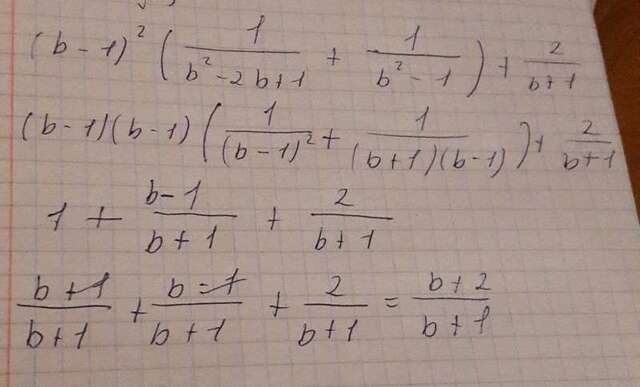 (b-1)² (1/(b²-2b+1) + 1/(b²-1)) + 2/(b+1)
(b-1)(b-1) (1/(b-1)² + 1/((b+1)(b-1))) + 2/(b+1)
1 + (b-1)/(b+1) + 2/(b+1)
(b+1)/(b+1) + (b-1)/(b+1) + 2/(b+1) = (b+2)/(b+1)